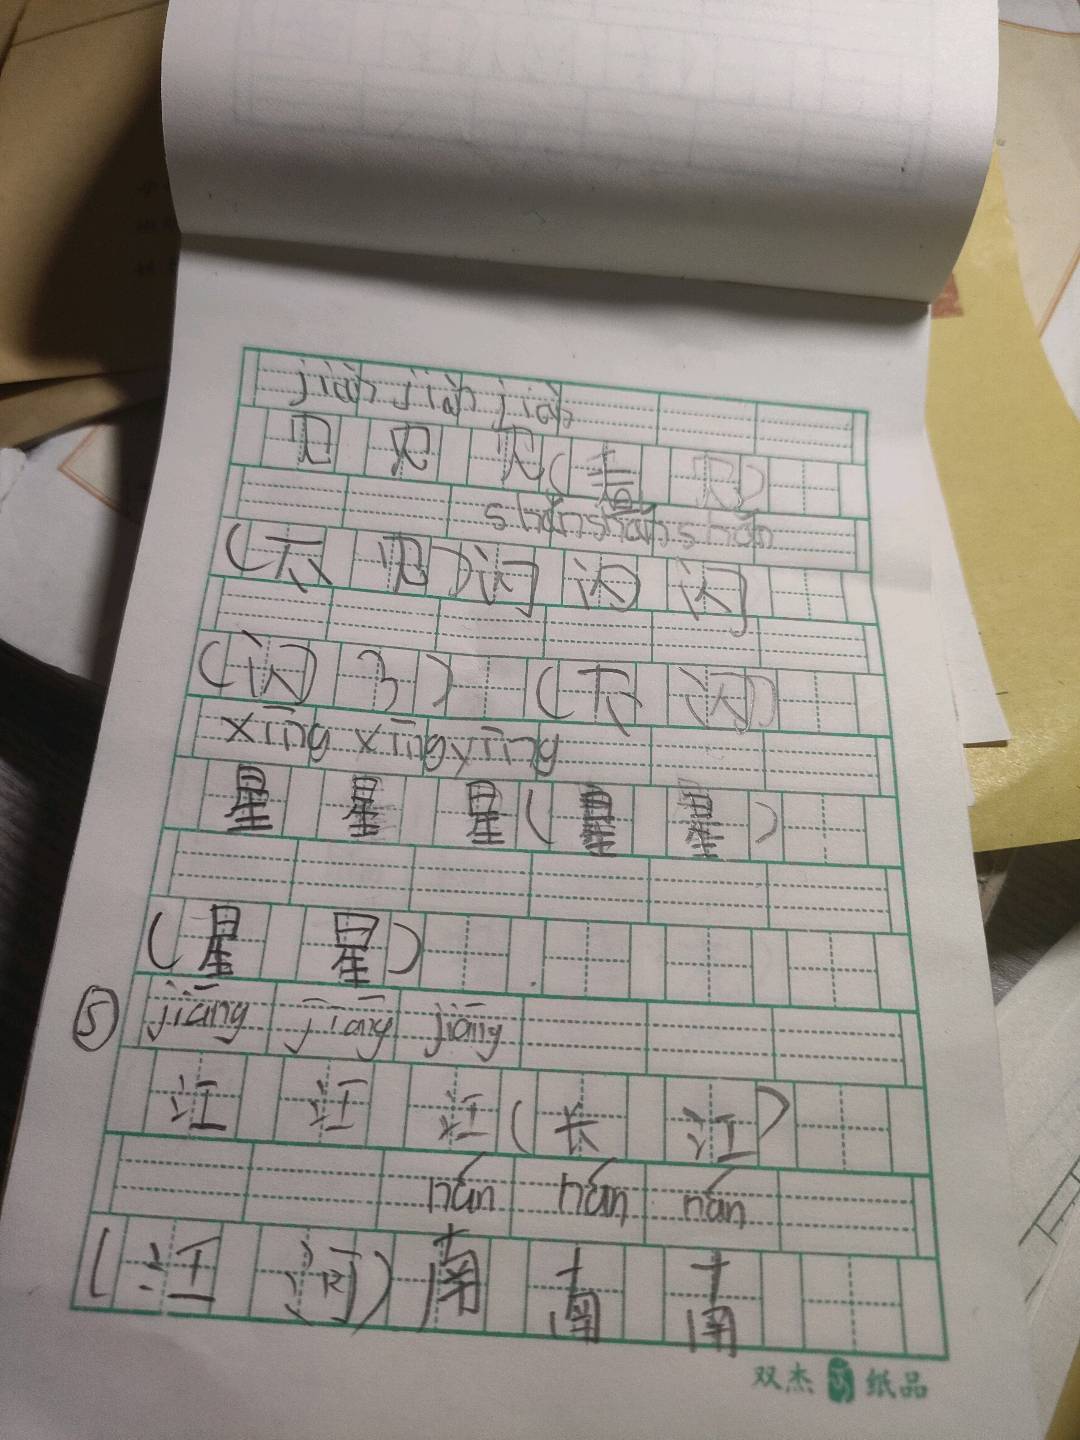 jiàn jiàn jiàn
见 见 见 (看 见)
shǎn shǎn shǎn
(不 见) 闪 闪 闪
(闪 了) (不 闪)
xīng xīng yīng
星 星 星 (星 星)
(星 星)
⑤ jiāng jiāng jiāng
江 江 江 (长 江)
nán nán nán
(江 河) 南 南 南
双杰 纸品